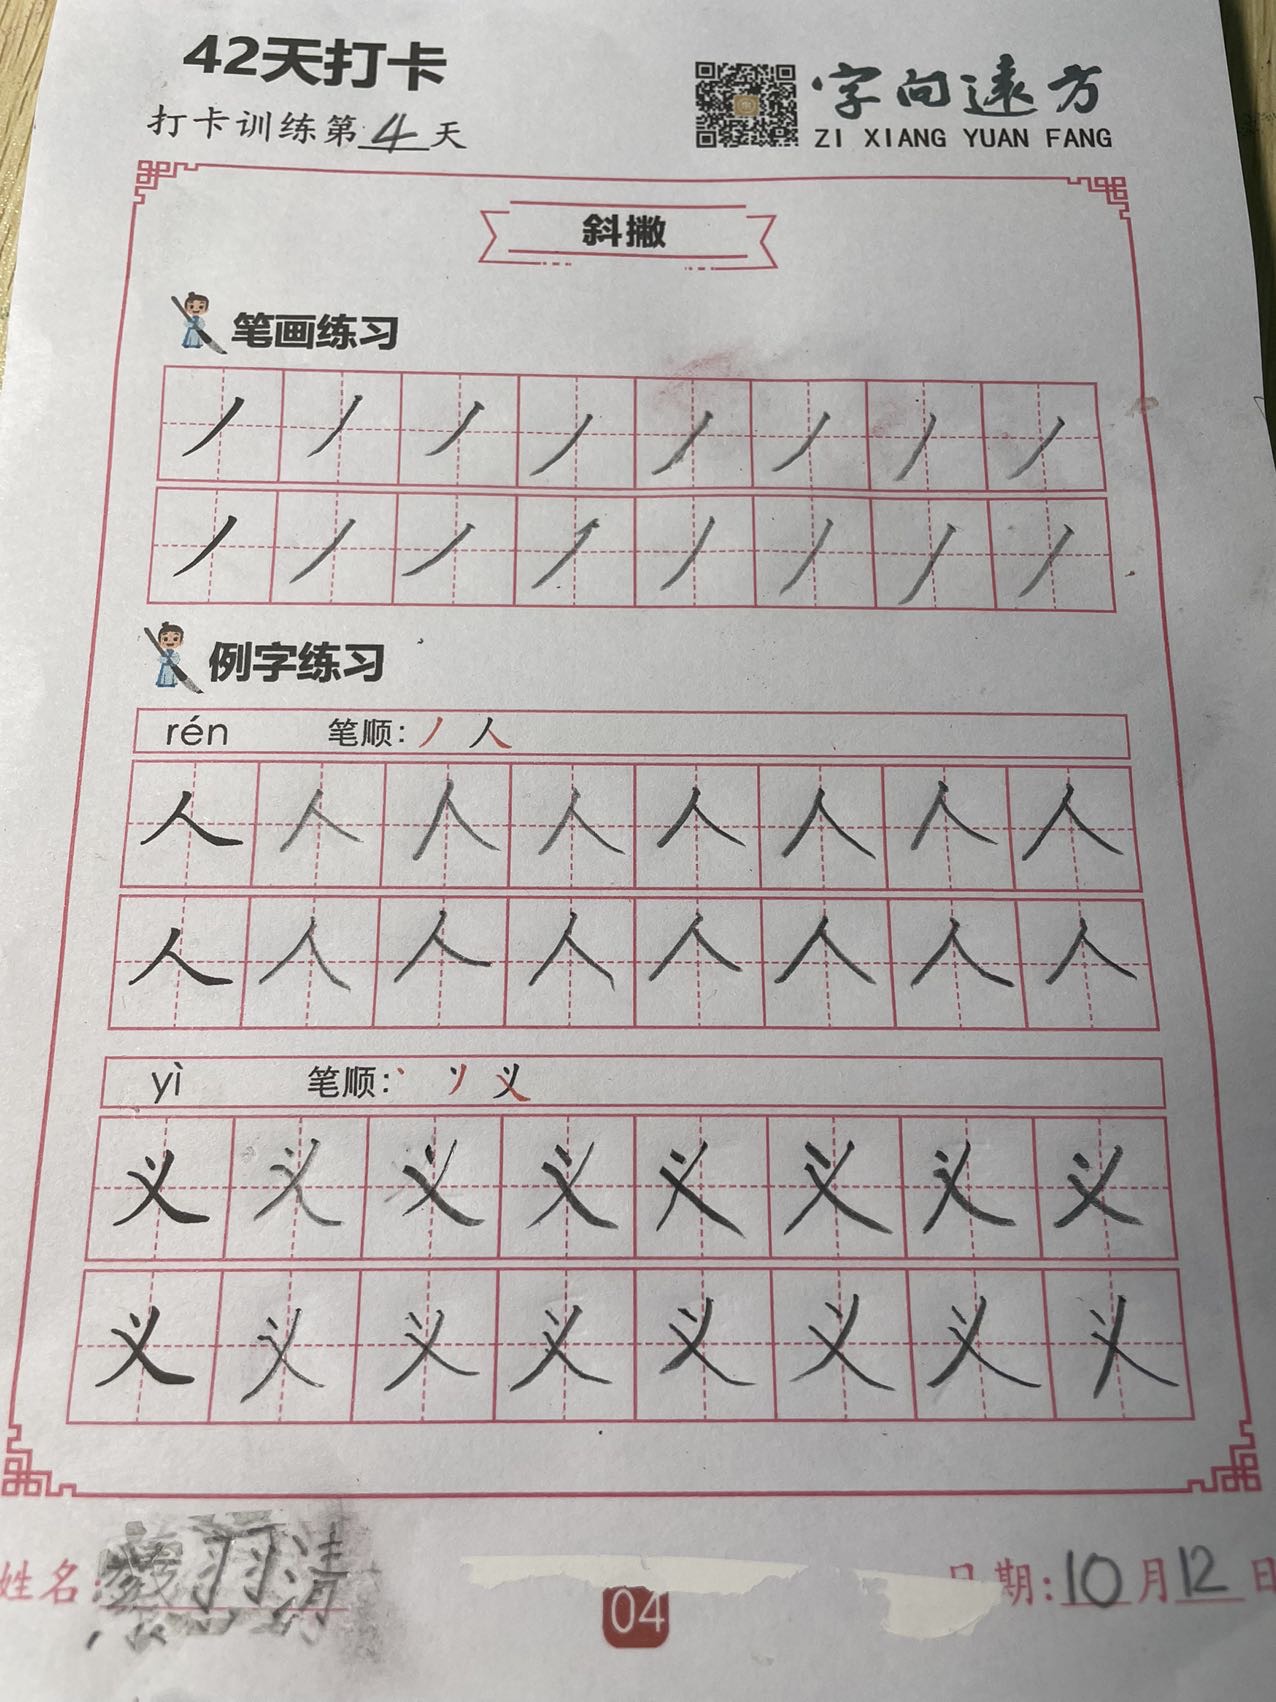 42天打卡
打卡训练第4天
字向远方
ZI XIANG YUAN FANG
斜撇
笔画练习
例字练习
rén 笔顺:丿 人
人 人 人 人 人 人 人 人
人 人 人 人 人 人 人 人
yì 笔顺:丶 义
义 义 义 义 义 义 义 义
义 义 义 义 义 义 义 义
姓名: 羽清
04
日期:10月12日